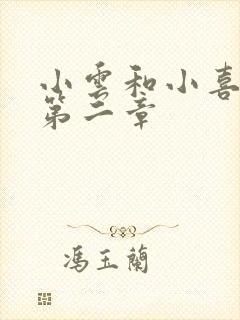 小雲和小喜
第二章
馮玉蘭